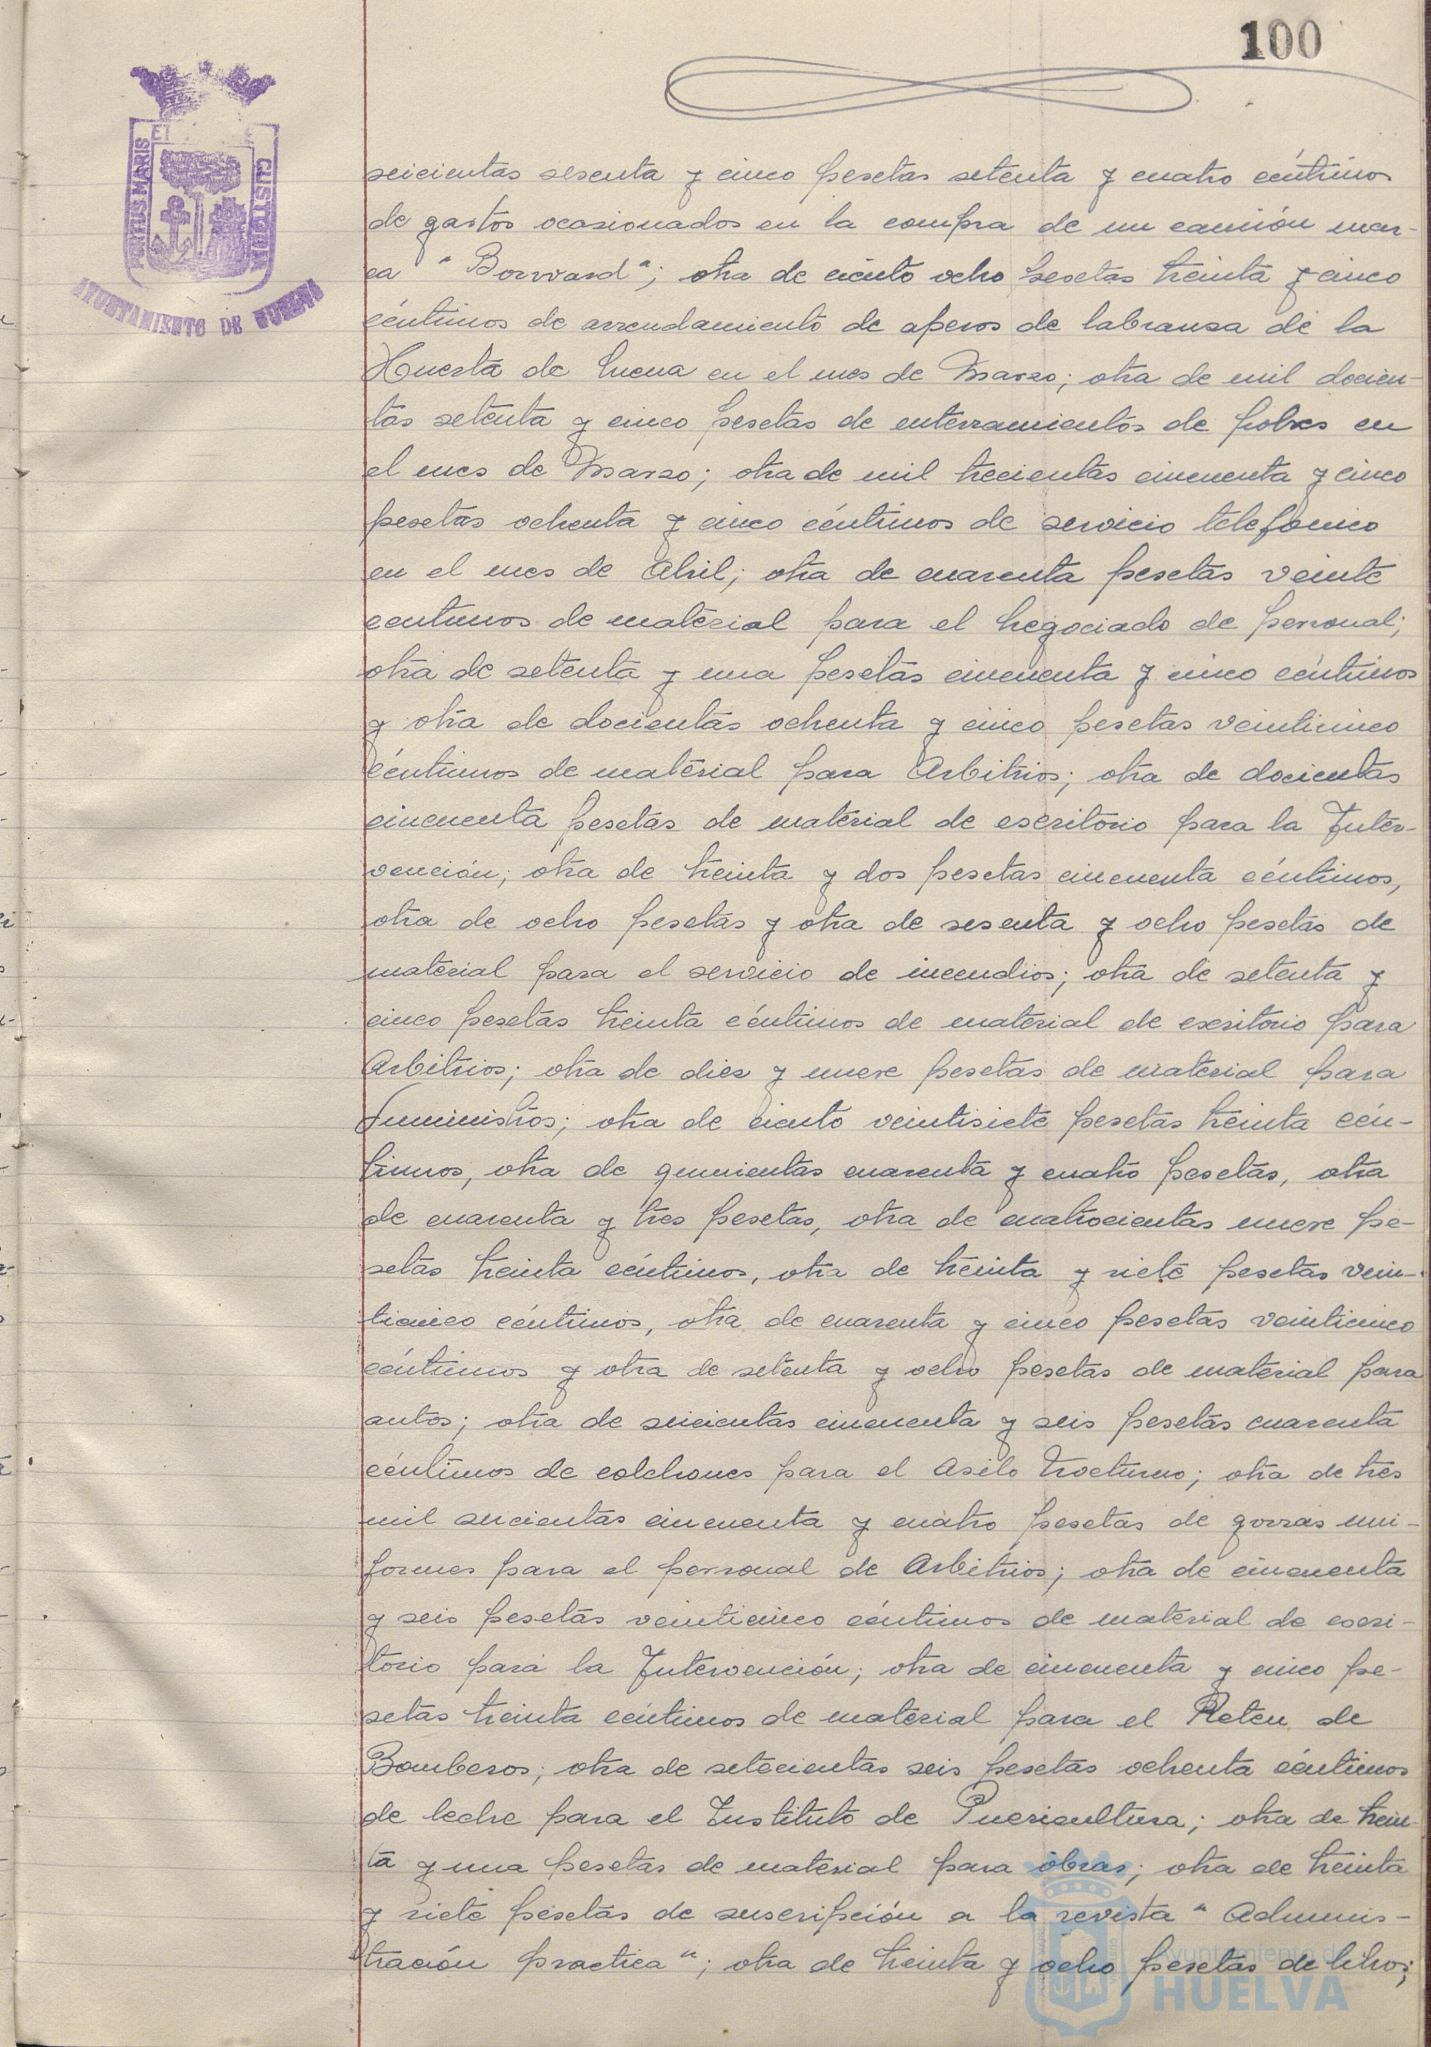 100
PORTUS MARIS ET CUSTODIA
AYUNTAMIENTO DE HUELVA
seicientas sesenta y cinco pesetas setenta y cuatro céntimos
de gastos ocasionados en la compra de un camión mar-
ca "Borvard"; otra de ciento ocho pesetas treinta y cinco
céntimos de arrendamiento de aperos de labransa de la
Huerta de Mena en el mes de Marzo; otra de mil docien-
tas setenta y cinco pesetas de enterramientos de pobres en
el mes de Marzo; otra de mil trecientas cincuenta y cinco
pesetas ochenta y cinco céntimos de servicio telefonico
en el mes de Abril; otra de cuarenta pesetas veinte
centimos de material para el Negociado de personal;
otra de setenta y una pesetas cincuenta y cinco céntimos
y otra de docientas ochenta y cinco pesetas veinticinco
céntimos de material para Arbitrios; otra de docientas
cincuenta pesetas de material de escritorio para la Inter-
vención; otra de treinta y dos pesetas cincuenta céntimos,
otra de ocho pesetas y otra de sesenta y ocho pesetas de
material para el servicio de incendios; otra de setenta y
cinco pesetas treinta céntimos de material de escritorio para
Arbitrios; otra de diez y nueve pesetas de material para
Suministros; otra de ciento veintisiete pesetas treinta cén-
timos, otra de quinientas cuarenta y cuatro pesetas, otra
de cuarenta y tres pesetas, otra de cuatrocientas nueve pe-
setas treinta céntimos, otra de treinta y siete pesetas vein-
ticinco céntimos, otra de cuarenta y cinco pesetas veinticinco
céntimos y otra de setenta y ocho pesetas de material para
autos; otra de seicientas cincuenta y seis pesetas cuarenta
céntimos de colchones para el Asilo Nocturno; otra de tres
mil seicientas cincuenta y cuatro pesetas de gorras uni-
formes para el personal de Arbitrios; otra de cincuenta
y seis pesetas veinticinco céntimos de material de escri-
torio para la Intervención; otra de cincuenta y cinco pe-
setas treinta céntimos de material para el Reten de
Bomberos; otra de setecientas seis pesetas ochenta céntimos
de leche para el Instituto de Puericultura; otra de trein-
ta y una pesetas de material para obras; otra de treinta
y siete pesetas de suscripción a la revista "Adminis-
tración practica"; otra de treinta y ocho pesetas de libros;
Ayuntamiento de
HUELVA